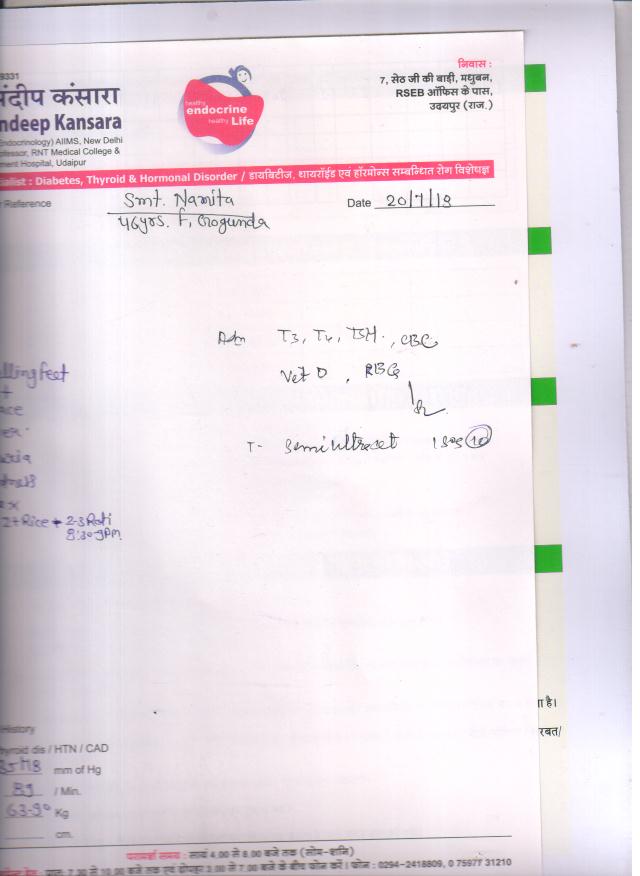 9331
निवास :
7, सेठ जी की बाड़ी, मधुबन,
RSEB ऑफिस के पास,
उदयपुर (राज.)
healthy
endocrine
healthy Life
दीप कंसारा
ndeep Kansara
Endocrinology) AIIMS, New Delhi
fessor, RNT Medical College &
ment Hospital, Udaipur
ialist : Diabetes, Thyroid & Hormonal Disorder / डायबिटीज, थायरॉईड एवं हॉरमोन्स सम्बन्धित रोग विशेषज्ञ
Reference
Smt. Namita
Date 20/7/18
46yrs. F, Gogunda
Adm T3, T4, TSH., CBC
Vit D, RBG
lling feet
+
ace
er
T- Semi ultracet 1 SOS 10
2+Rice + 2-3 Roti
8:30-9PM
ा है।
रबत/
History
hyroid dis / HTN / CAD
mm of Hg
89 / Min.
63.90 Kg
cm.
परामर्श समय : सायं 4.00 से 8.00 बजे तक (सोम-शनि)
प्रातः 7.30 से 10.00 बजे तक एवं दोपहर 3.00 से 7.00 बजे के बीच फोन करें। फोन : 0294-2418809, 0 75977 31210